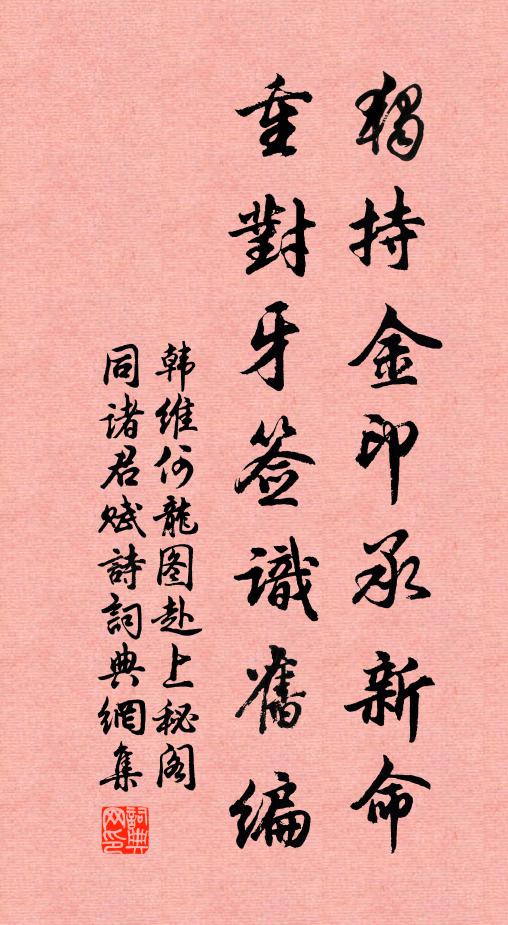 獨持金印承新命
重對牙签識舊编
韩维何龍图赴上秘阁
同诸君赋詩詞典網集
詞典网印